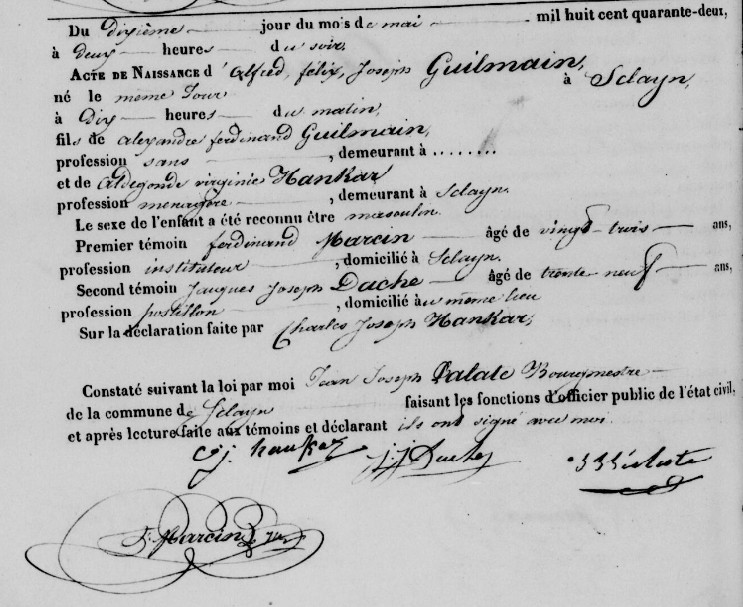 Du dixième jour du mois de mai mil huit cent quarante-deux,
à deux heures du soir,
ACTE DE NAISSANCE d' Alfred, félix, Joseph Guilmain,
né le même Jour à Sclayn,
à dix heures du matin,
fils de alexandre ferdinand Guilmain,
profession sans , demeurant à ........
et de Aldegonde virginie Hankar
profession menagère , demeurant à Sclayn.
Le sexe de l'enfant a été reconnu être masculin.
Premier témoin ferdinand Marcin âgé de vingt-trois ans,
profession instituteur , domicilié à Sclayn.
Second témoin Jacques Joseph Dache âgé de trente neuf ans,
profession postillon , domicilié au même lieu
Sur la déclaration faite par Charles Joseph Hankar,
Constaté suivant la loi par moi Jean Joseph Bourgmestre
de la commune de Sclayn faisant les fonctions d'officier public de l'état civil,
et après lecture faite aux témoins et déclarant ils ont signé avec moi.
c.j. hankar j.j Dache
f. Marcin